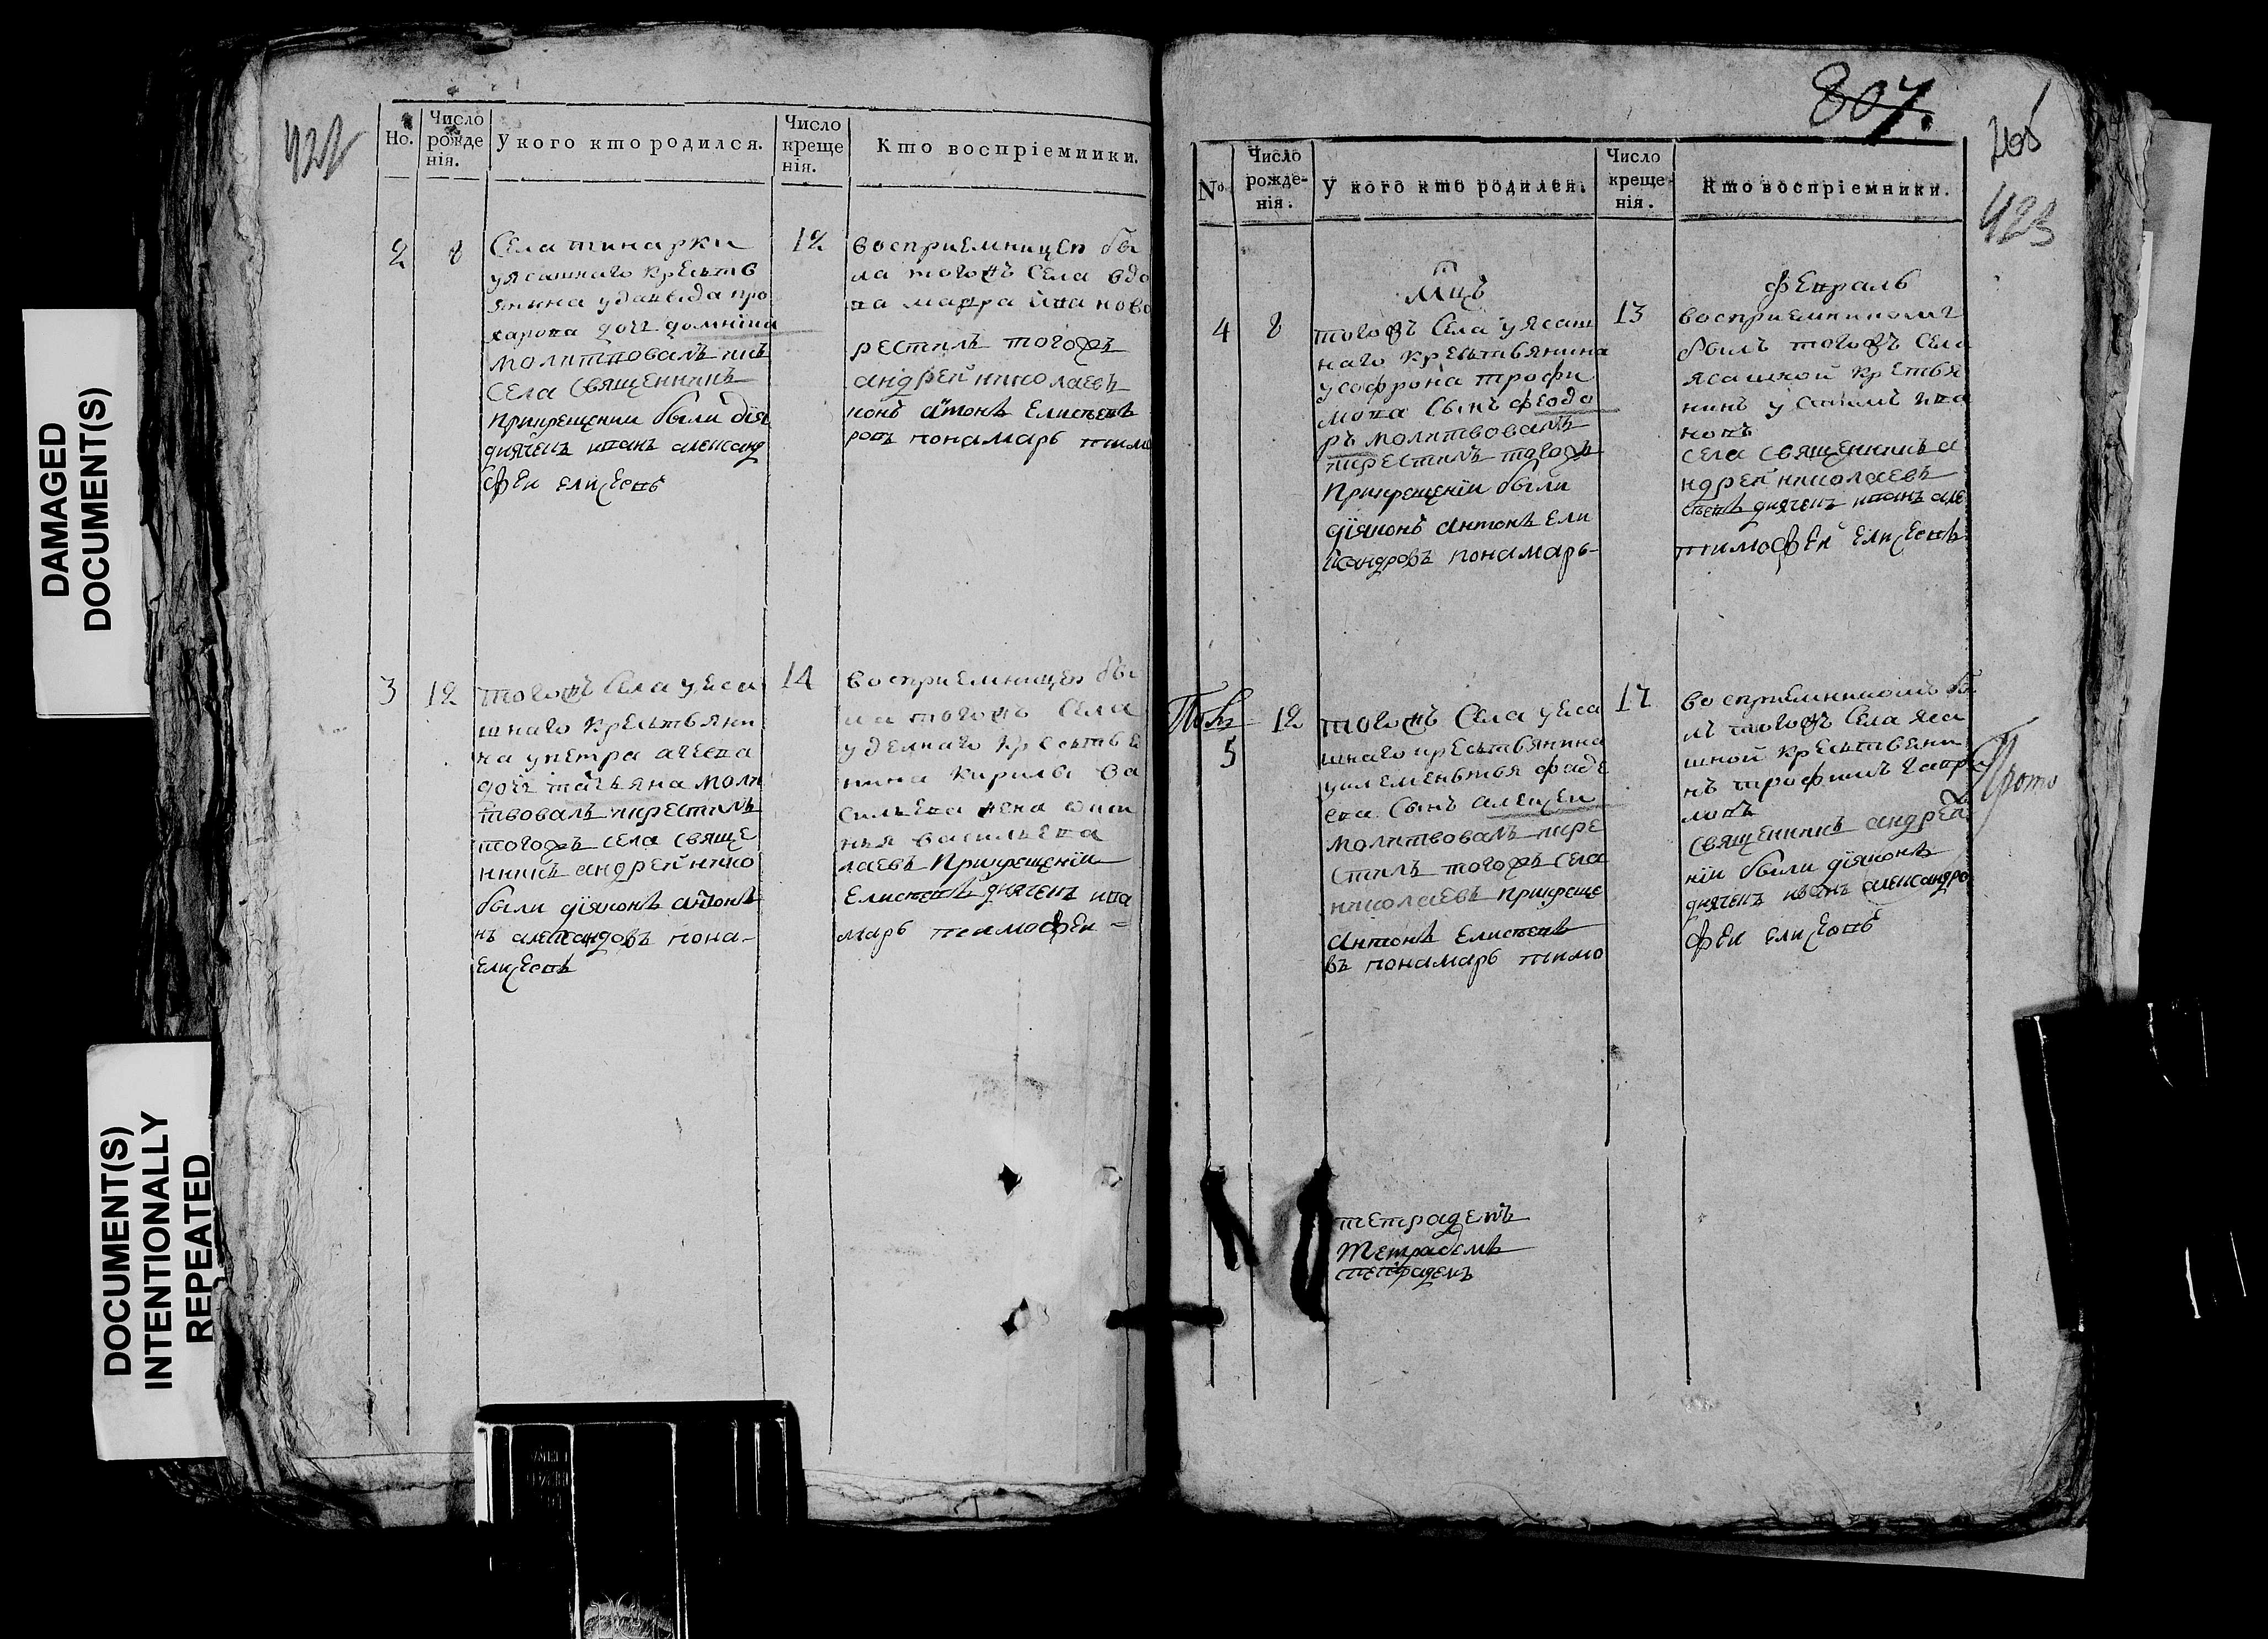 DAMAGED
DOCUMENT(S)
DOCUMENT(S)
INTENTIONALLY
REPEATED
422
Но.
Число
рожде
нія.
У кого кто родился.
Число
креще
нія.
Кто воспріемники.
2
8
Села тинарки
у ясашнаго крестьв
янина у давыда про
харова дочь домніпа
молитвовалъ икъ
села священникъ
при крещении были дія
диячекъ иванъ александ
феи елисеевъ
12
восприемницеи бы
ла тогожъ села вдо
ва мавра ивановв
рестилъ тогожъ
андреи николаевъ
конъ антонъ елисеевъ
ровъ пономарь тимо
3
12
тогожъ села у еса
шнаго крестьвяни
на у петра агеева
дочь татьяна моли
твовалъ икрестилъ
тогожъ села свяще
нникъ андреи нико
были діяконъ антонъ
нъ александровъ пона-
елисеевъ
14
восприемницеи бы
ла тогожъ села
уделнаго крестьве
нина кирилы ва
сильева жена
нья васильева
лаевъ при крещеніи
елисеевъ диячекъ ива
марь тимофеи =
807.
265
423
№
Число
рожде-
нія.
У кого кто родился.
Число
креще-
нія.
Кто воспріемники.
Мцъ
февраль
4
8
тогожъ села у ясаш
наго крестьвянина
у софрона трофи
мова сынъ феодо
ръ молитвовалъ
икрестилъ тогожъ
при крещеніи были
діяконъ антонъ ели
ксандровъ понамарь-
13
восприемникомъ
былъ тогожъ села
ясашной крестья
нинъ устимъ ива
новъ
села священникъ а
ндреи николаевъ
сеевъ диячекъ иванъ але
тимофеи елисеевъ
5
12
тогожъ села у еса
шнаго крестьвянина
у клеменьтья фаде
ева сынъ алексеи
молитвовалъ икре
стилъ тогожъ села
николаевъ при креще
антонъ елисеевъ
въ понамарь тимо
17
восприемникомъ бы
лъ тогожъ села яса
шной крестьвени
нъ трофимъ гаври
ловъ
священникъ андреи
ніи были діяконъ
диячекъ иванъ александро
феи елисеевъ
Прото
тетрадемъ
Тетрадемъ
тетрадемъ